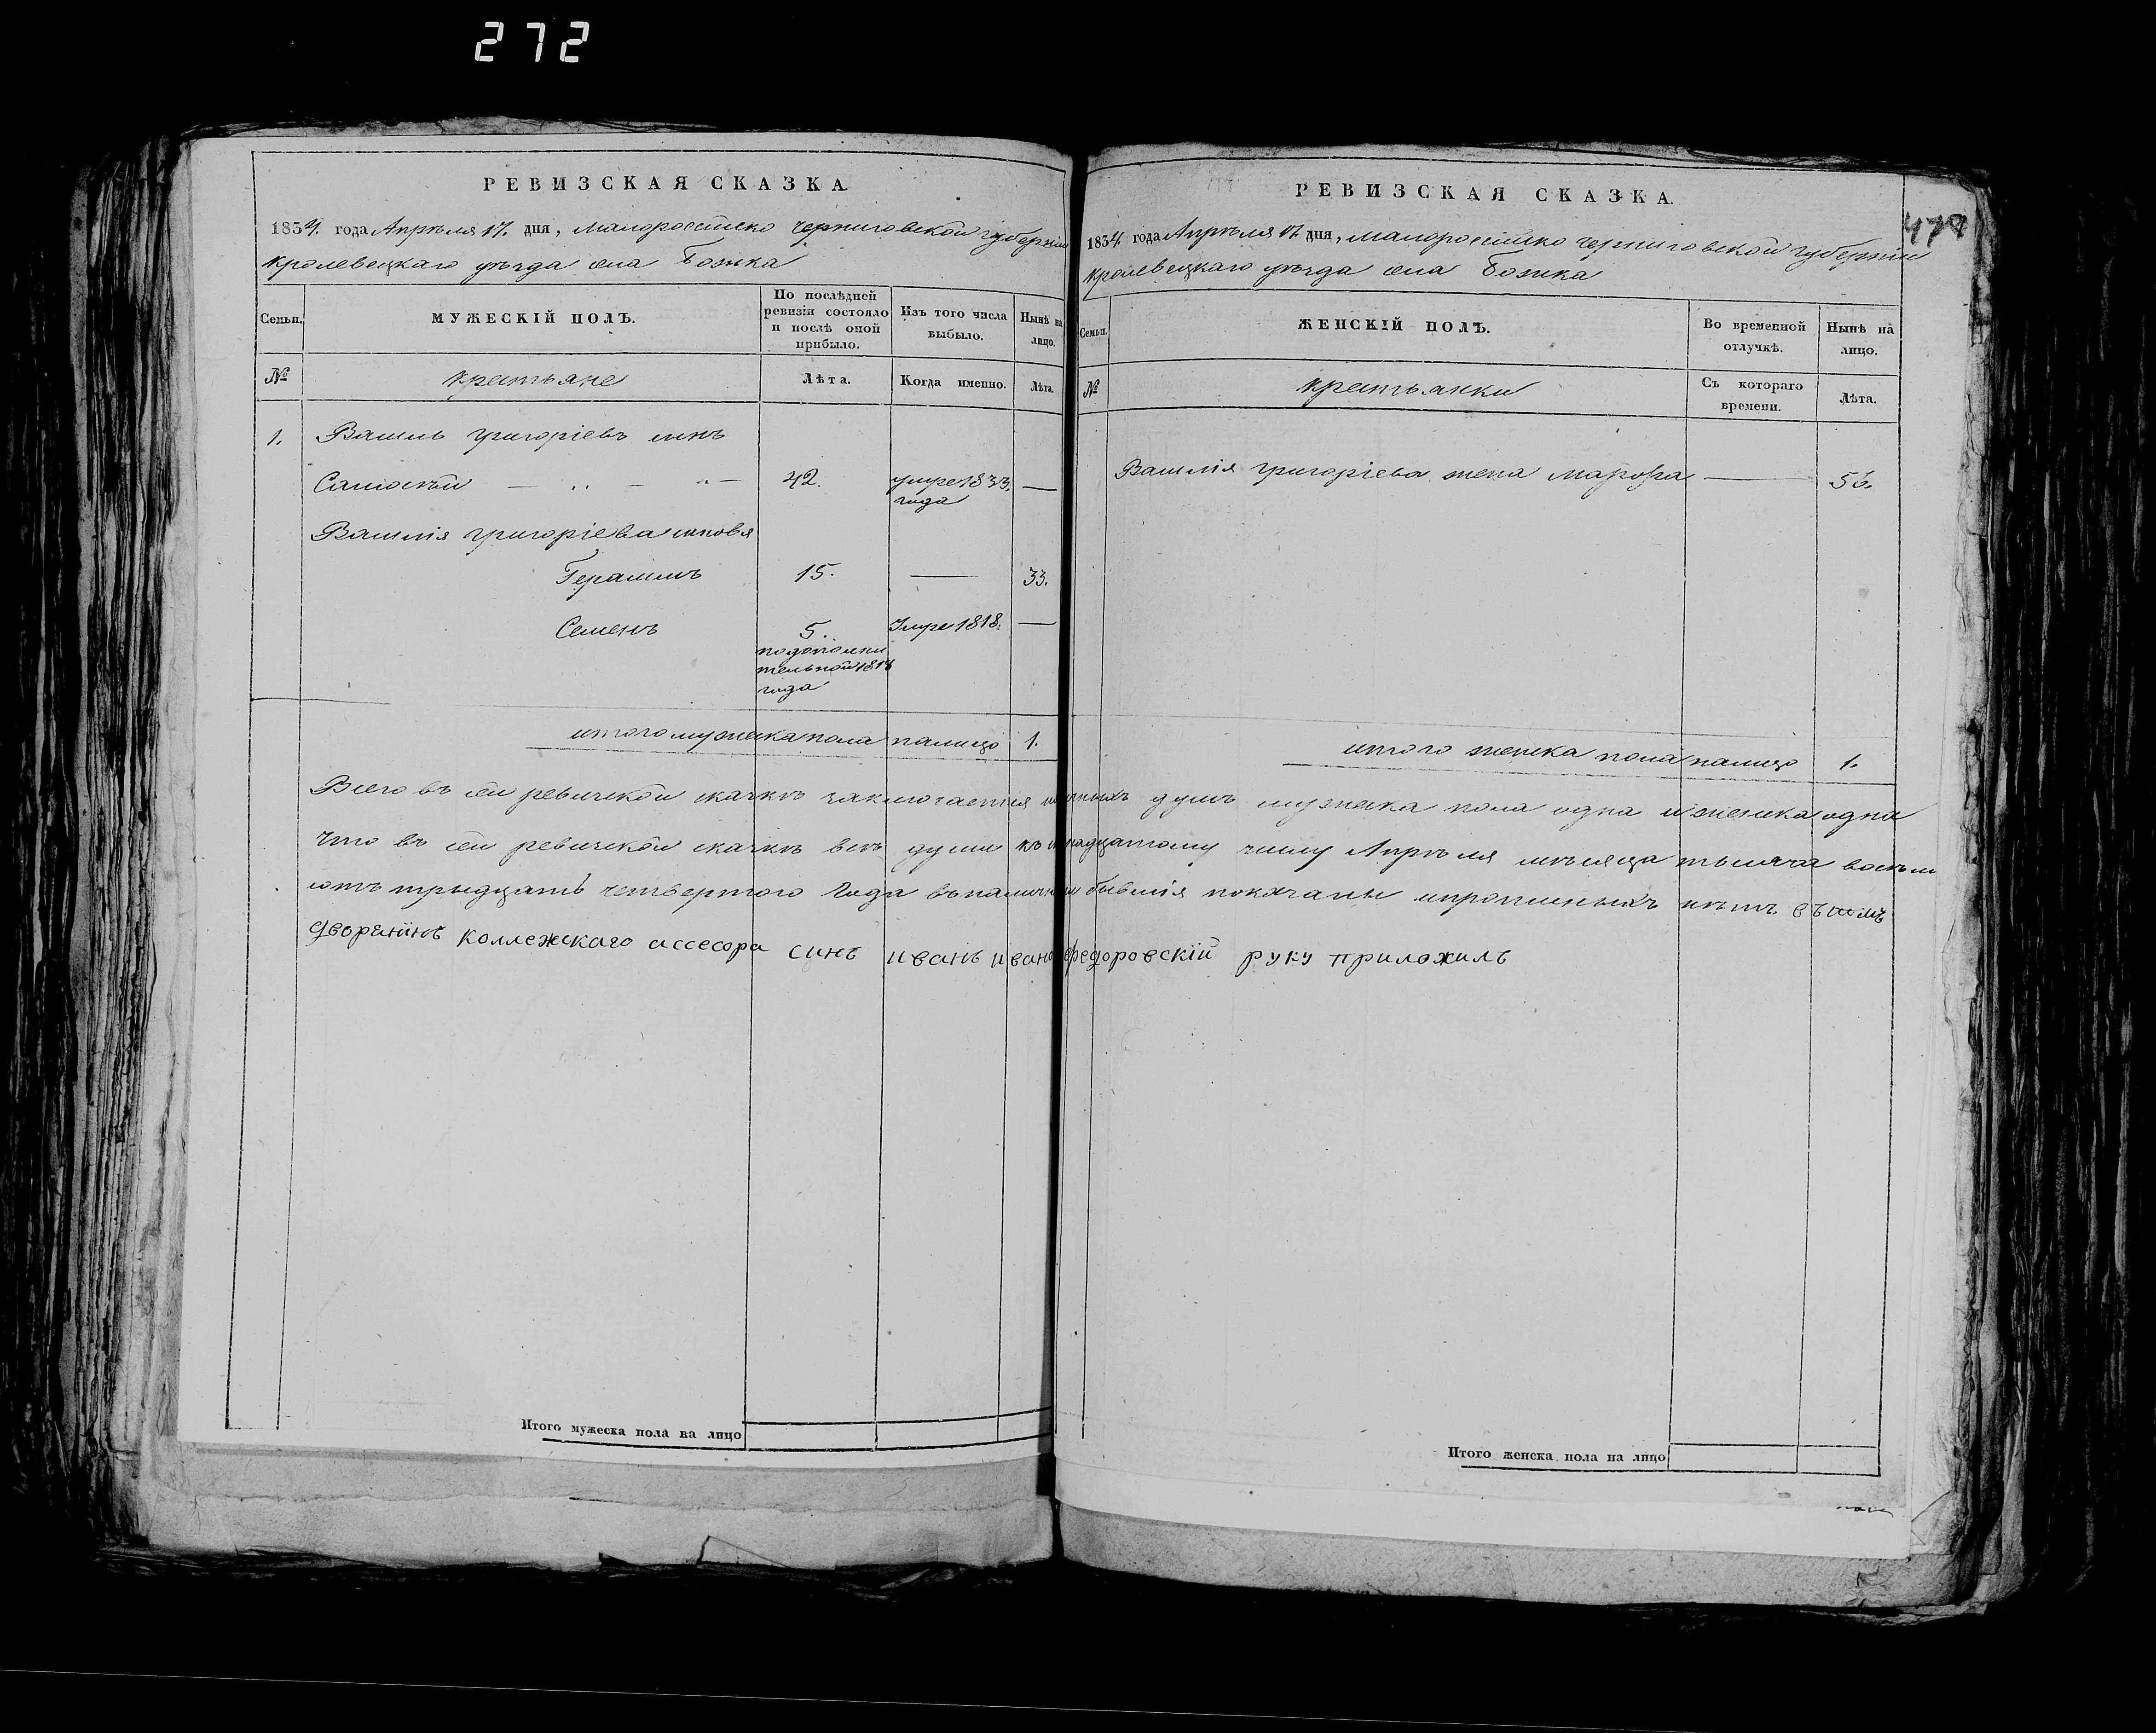 272
РЕВИЗСКАЯ СКАЗКА.
1834. года Апрѣля 17. дня, Малоросійско Черниговской губерніи
Кролевецкаго уѣзда села Божка
Семьи.
МУЖЕСКІЙ ПОЛЪ.
По послѣдней ревизіи состояло и послѣ оной прибыло.
Изъ того числа выбыло.
Нынѣ на лицо.
№
крестьяне
Лѣта.
Когда именно.
Лѣта.
1. Василь Григоріевъ сынъ
42. умре 1833. года —
Василія Григоріева сыновья
Герасимъ 15. — 33.
Семенъ 5. Умре 1818. —
по дополнительной 1817 года
итого мужска пола налицо 1.
РЕВИЗСКАЯ СКАЗКА.
477
1834. года Апрѣля 17. дня, Малоросійско Черниговской губерніи
Кролевецкаго уѣзда села Божка
Семьи.
ЖЕНСКІЙ ПОЛЪ.
Во временной отлучкѣ.
Нынѣ на лицо.
№
крестьянки
Съ котораго времени.
Лѣта.
Василія Григоріева жена Марфа — 56.
итого женска пола налицо 1.
Всего въ сей ревизской сказкѣ заключается душъ мужеска пола одна и женска одна
Что въ сей ревизской сказкѣ всѣ души къ числу Апрѣля мѣсяца тысяча восемь
сотъ тридцать четвертого Года въ наличіи бывшія показаны и прописныхъ нѣтъ въ томъ
дворянинъ коллежскаго ассесора синъ иванъ федоровскій руку приложилъ
Итого мужеска пола на лицо
Итого женска пола на лицо